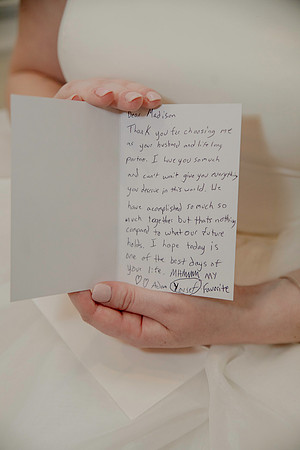 Dear Madison
Thank you for choosing me
as your husband and life long
partner. I love you so much
and can't wait give you everything
you deserve in this world. We
have acomplished so much so
much together but thats nothing
compared to what our future
holds. I hope today is
one of the best days of
your life. MY
♡♡ Adam Yousef favorite